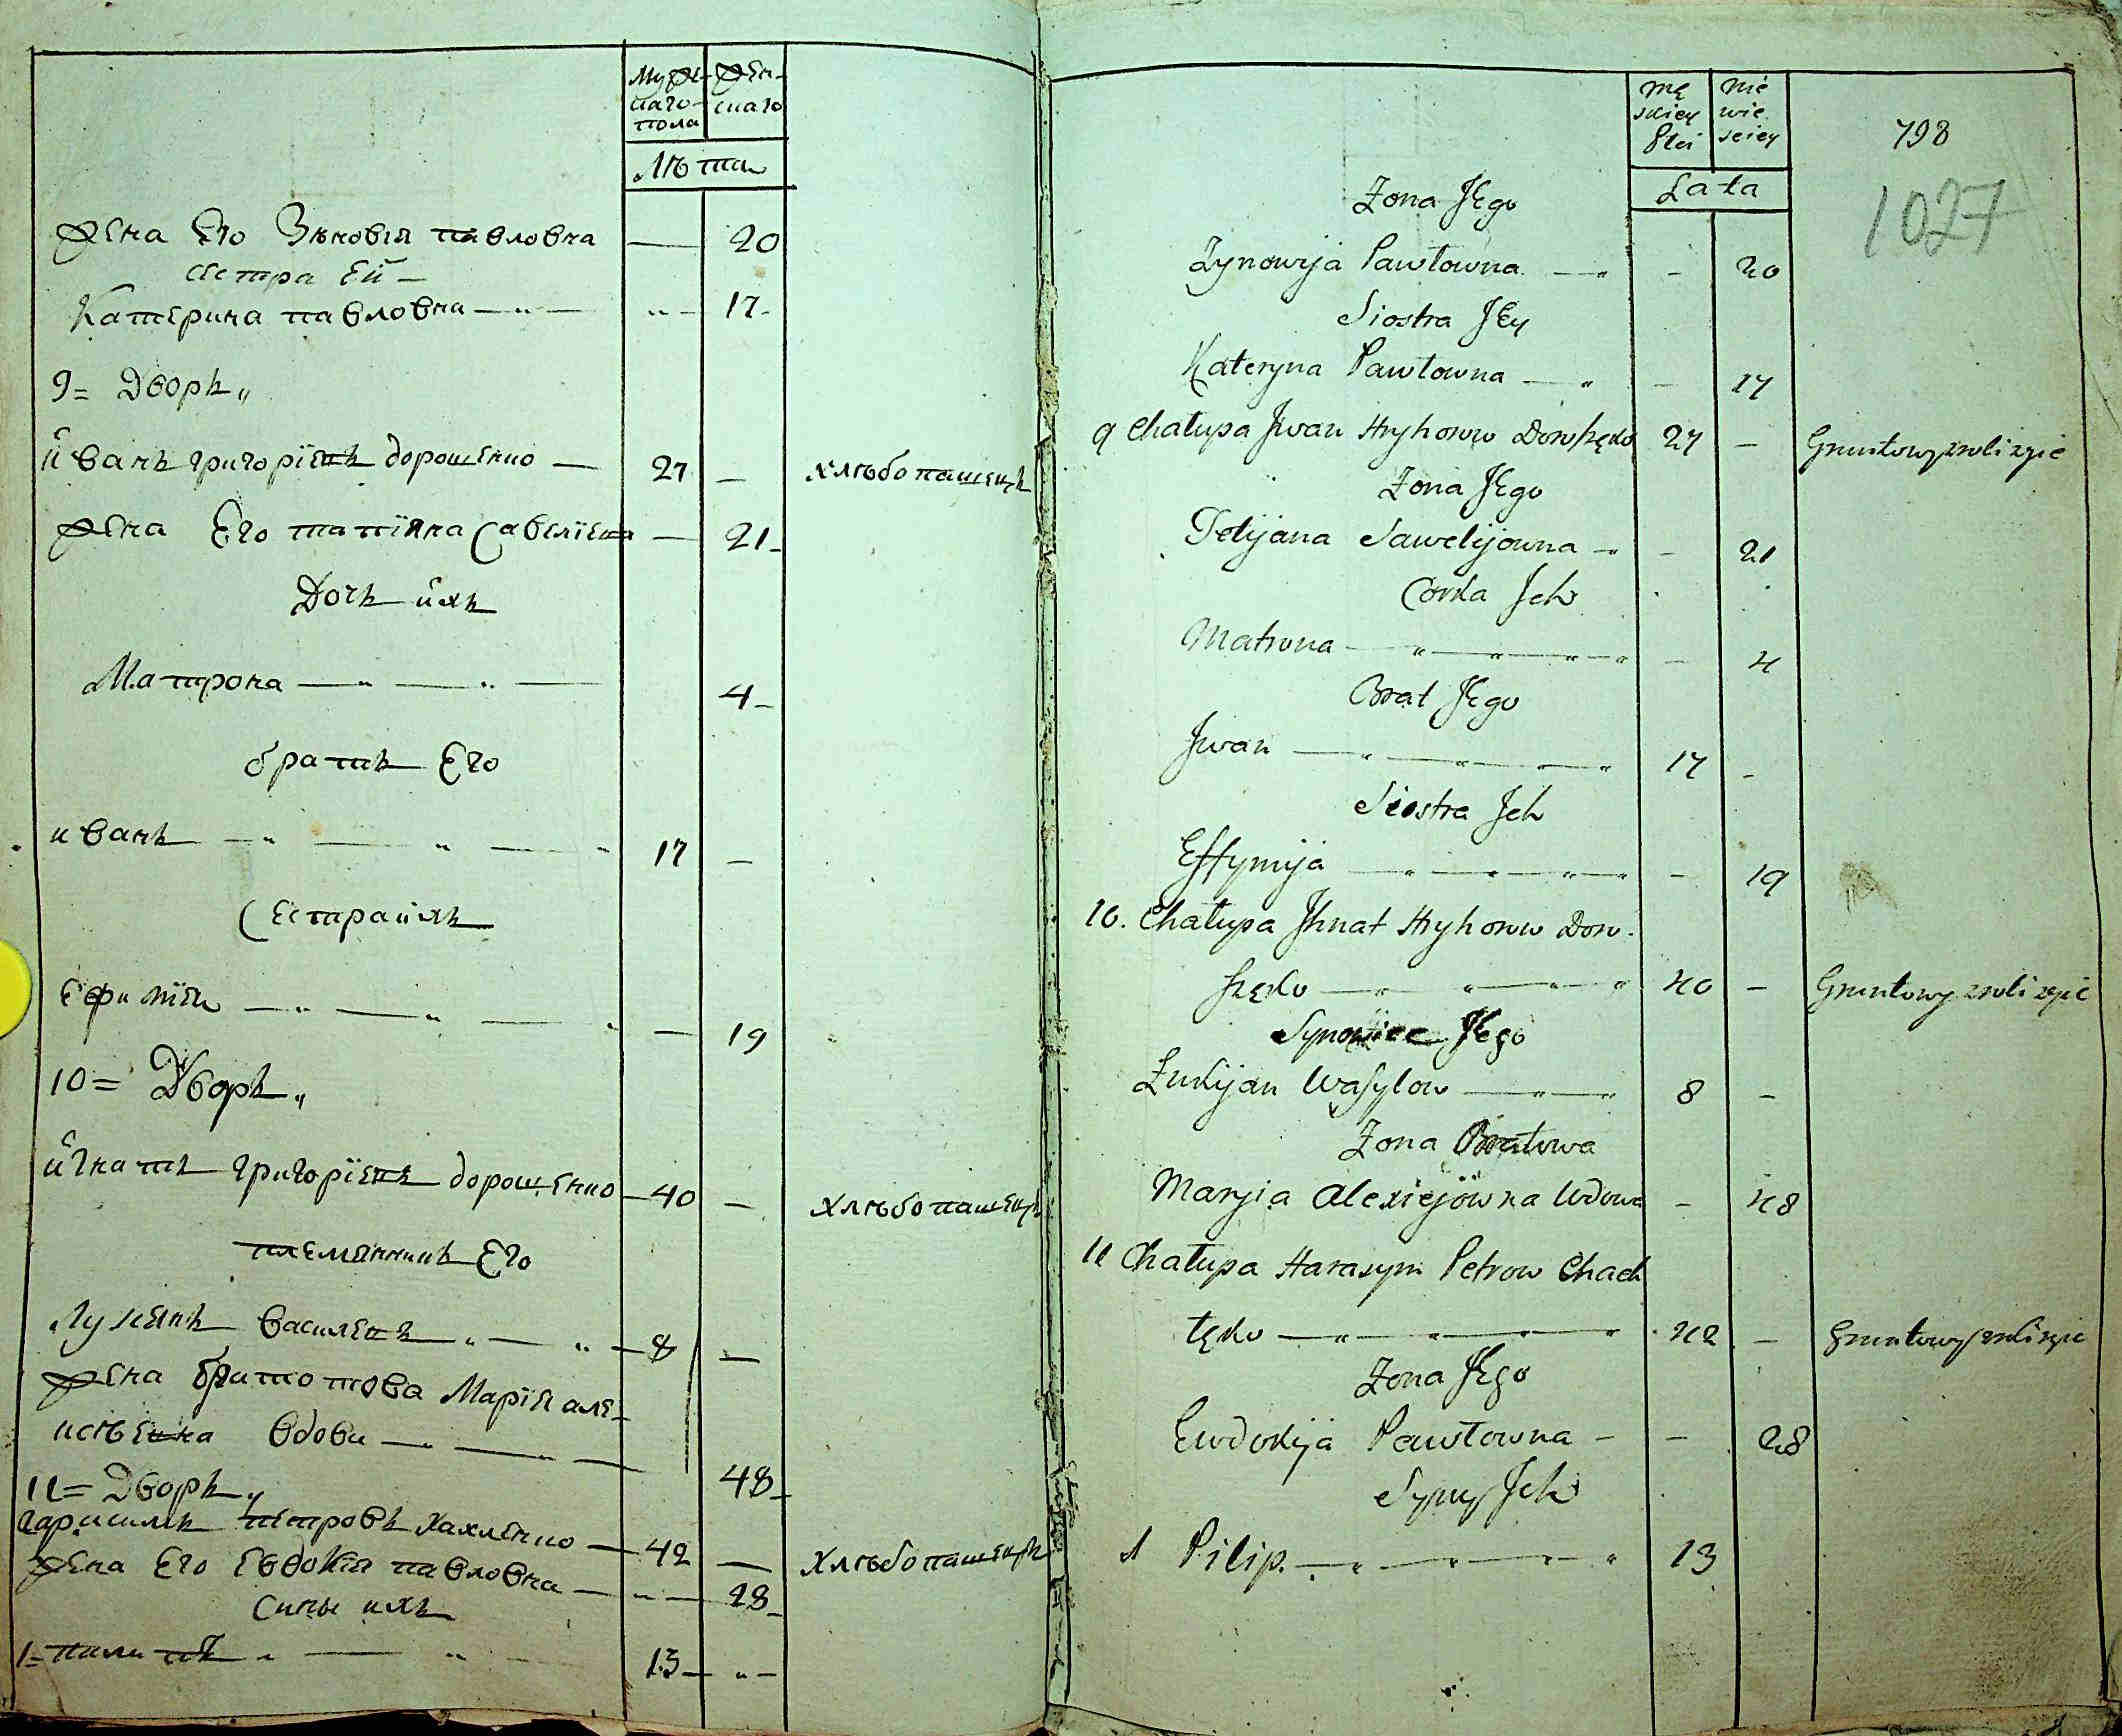 Муже- жен-
скаго скаго
пола
Лѣта
жена Его Зѣновія павловна — 20
сестра Ей —
Катерина павловна — „ — „ — 17
9 = Дворъ „
иванъ григоріевъ дорошенко — 27 — хлѣбопашецъ
жена Его татіяна Савеліевна — 21
Дочь ихъ
Матрона — „ — „ — 4
братъ Его
иванъ — „ — „ — „ 17 —
Сестра ихъ
Ефимія — „ — „ — „ — 19
10 = Дворъ „
игнатъ григоріевъ дорошенко — 40 — хлѣбопашецъ
племянникъ Его
Лукянъ василевъ „ — „ — 8 —
жена братова Марія але-
ксѣевна вдова — „ — 48
11 = Дворъ „
гарасимъ петровъ хахленко — 42 — хлѣбопашецъ
жена Его Евдокія павловна — „ — 28
Сины ихъ
1 = пилипъ „ — „ — 13 — „ —
mę nie
skiey wie
płci sciey
798
Lata
1027
Żona Jego
Zynowija Pawłowna — „ - 20
Siostra Jey
Kateryna Pawłowna — „ - 17
9 Chałupa Jwan Hryhorow Doroszęko 27 — Gruntowy z roli żyie
Żona Jego
Tetijana Sawelijowna — „ - 21
Corka Jch
Matrona — „ — „ — „ — „ - 4
Brat Jego
Jwan — „ — „ — „ — „ 17 -
Siostra Jch
Effymija — „ — „ — „ — „ - 19
10. Chałupa Jhnat Hryhorow Doro-
szęko — „ — „ — „ — „ 40 — Gruntowy z roli żyie
Synowiec Jego
Łukijan Wasylow — „ — „ 8 -
Żona Bratowa
Maryia Alexiejowna Wdowa - 48
11 Chałupa Harasym Petrow Chach
lęko — „ — „ — „ — „ 42 — Gruntowy z roli żyie
Żona Jego
Ewdokija Pawłowna - - 28
Syny Jch
1 Pilip. — „ — „ — „ — „ 13